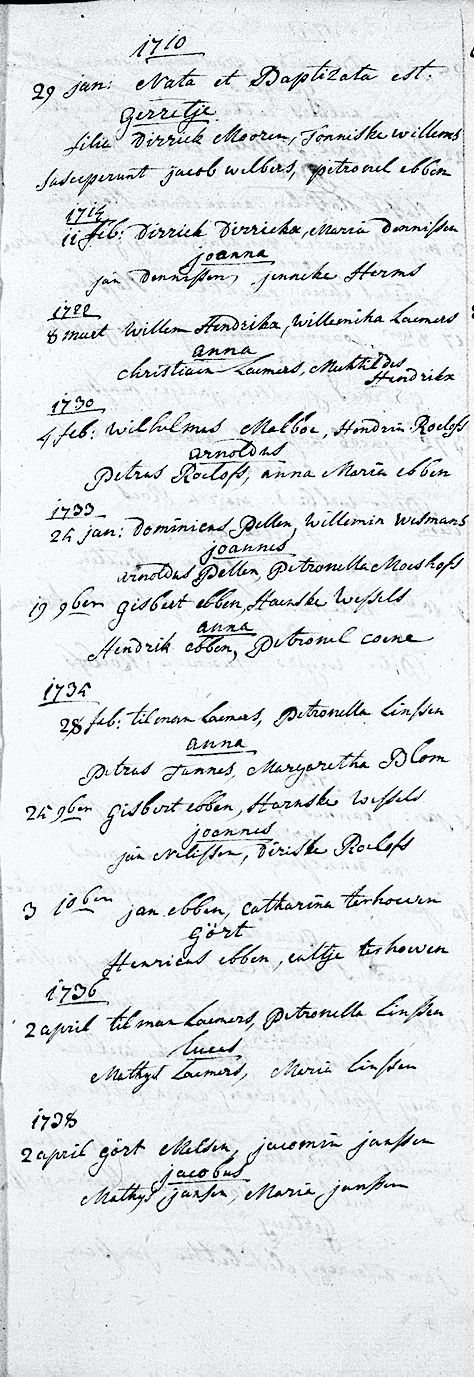 1710
29 jan: Nata et Baptizata est.
Gerretje
filia Dirrick Mooren, Tonniske willems
Susceperunt jacob welbers, petronel ebben
1714
11 feb: Dirrick Dirrickx, Maria Dennissen
joanna
jan Dennissen, jenneke Herms
1722
8 maet Willem Hendrikx, Willemika Laemers
anna
Christiaen Laemers, Mechtildes
Hendrikx
1730
4 feb: Wilhelmus Malboe, Hendrin Roeloffs
arnoldus
Petrus Roeloffs, anna Maria ebben
1733
25 jan: Dominicus Pellen, Willemin Wismans
joannes
arnoldus Pellen, Petronella Moeshofs
19 9ben Gisbert ebben, Haenske Wessels
anna
Hendrik ebben, Petronel Coene
1735
28 feb: tilman Laemers, Petronella Linssen
anna
Petrus Tunnes, Margaretha Blom
25 9ben Gisbert ebben, Harnske Wessels
joannes
jan Nelissen, Dirske Roeloffs
3 10ben jan ebben, Catharina terhoeven
Gört
Henricus ebben, ealtje terhoeven
1736
2 april tilman Laemers, Petronella Linssen
Lucas
Mathys Laemers, Maria Linssen
1738
2 april gört Melsen, jacomin janssen
jacobus
Mathys jansen, Maria janssen